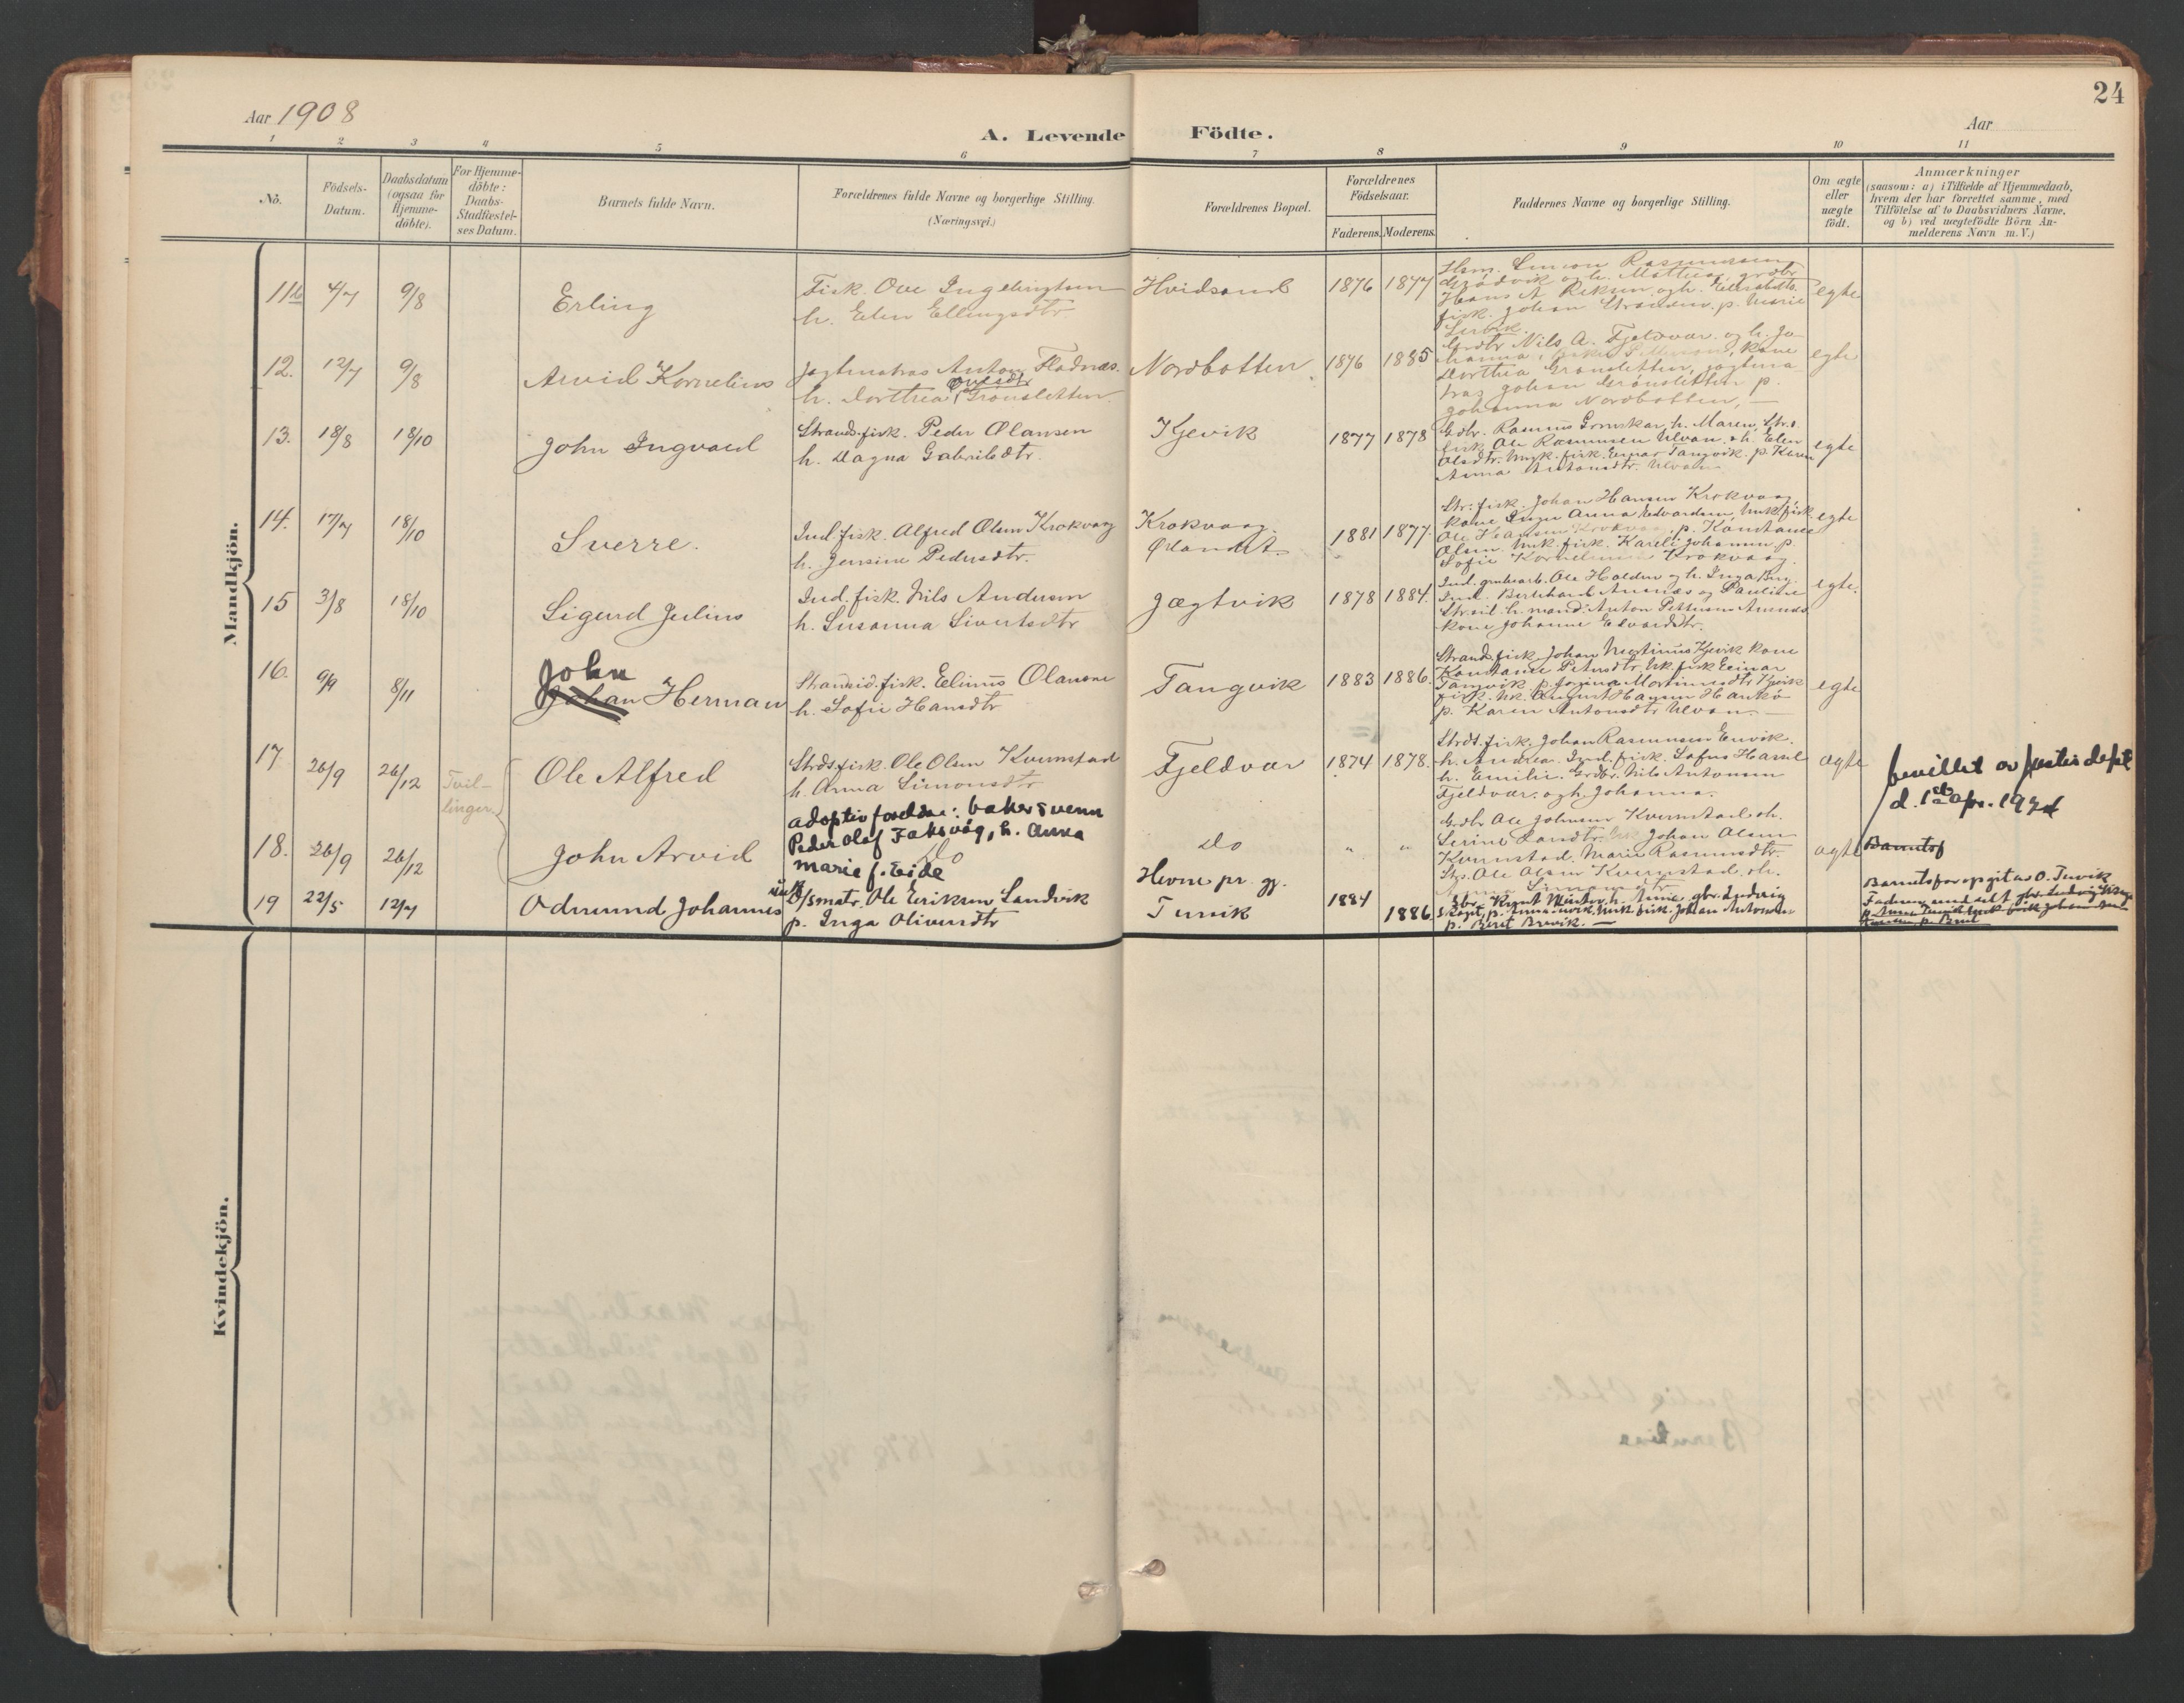 24
Aar 1908
A. Levende Födte.
Aar
1 2 3 4 5 6 7 8 9 10 11
No.
Födsels-Datum.
Daabsdatum (ogsaa for Hjemme-döbte).
For Hjemme-döbte: Daabs-Stadfæstel-ses Datum.
Barnets fulde Navn.
Forældrenes fulde Navne og borgerlige Stilling.
(Næringsvei.)
Forældrenes Bopæl.
Forældrenes Födselsaar.
Faderens. Moderens.
Faddernes Navne og borgerlige Stilling.
Om ægte eller uægte födt.
Anmærkninger
(saasom: a) i Tilfælde af Hjemmedaab,
hvem der har forrettet samme, med
Tilföielse af to Daabsvidners Navne,
og b) ved uægtefödte Börn An-
melderens Navn m. V.)
Mandkjön.
11b 4/7 9/8 Erling
Fisk. Ove Ingebrigtsen
h. Elen Ellingsdtr
Hvidsand 1876 1877
Hsm. Simon Rasmussen
Grødvik og h. Mathea, grdbr.
fisk. Johan Strandem. p. Marie
egte
12. 12/7 9/8 Arvid Kornelius
Jagtmatros Anton Fladnæs.
Ovesdtr
h. Dorthea Grønsletten.
Nordbotten 1876 1885
Grdbr Nils A. Fjeldvær og h. Jo-
hanna, kone
Dorthea Grønsletten, jagtma-
tros Johan Grønsletten p.
Johanna Nordbotten, —
egte
13. 18/8 18/10 John Ingvald
Strands.fisk. Peder Olansen
h. Dagna Gabrielsdtr.
Kjevik 1877 1878
Gdbr. Rasmus h. Maren, Str.s
fisk. Ole Rasmussen Ulvan & h. Elen
Olsdtr. Ungk. fisk. Einar Tangvik. p. Karen
Anna Antonsdtr. Ulvan
egte
14. 17/7 18/10 Sverre.
Ind. fisk. Alfred Olsen Krokvaag
h. Jensine Pedersdtr.
Krokvaag.
Ørlandet. 1881 1877.
Str. fisk. Johan Hansen Krokvaag,
kone Inger Anna Edvardsen, Ungk. fisk
Ole Hansen Krokvaag, p. Konstanse
Olsen. Ungk. fisk. Kareli Johansen p.
Sofie Kornelius Krokvaag.
egte
15 3/8 18/10 Sigurd Julius
Ind. fisk. Nils Andersen
h. Susanna Sivertsdtr
Jægtvik 1878 1884.
Ind. grubearb. Ole Halden og h. Inga Berg.
Ind. Bernhard Aunæs og Pauline
Str.sit. h. mand. Anton Pettersen Aunæs
kone Johanne Edvardsdtr.
egte.
16. 9/9 8/11 John
Johan Herman
Strandsid. fisk. Elinus Olansen
h. Sofie Hansdtr
Tangvik 1883 1886.
Strands.fisk. Johan Martinus Kjevik kone
Konstanse Petersdtr. Uk. fisk Einar
Tangvik p. Josina Martinusdtr. Kjevik
fisk. Uk. August Hansen
p. Karen Antonsdtr Ulvan. —
egte
17 26/9 26/12 Tvil-
linger. Ole Alfred
Strds. fisk. Ole Olsen Kvernstad
h. Anna Simonsdtr
Fjeldvær 1874 1878.
Strds. fisk. Johan Rasmussen Envik.
h. Andrea. Ind. fisk. Sofus Hassel
h. Emilie. Grdbr. Nils Antonsen
Fjeldvær. og h. Johanna.
ægte
bevillet av justisdept
d. 1ste apr. 1921
18. 26/9 26/12 John Arvid
adoptivforeldre: bakersvenn
Peder Olaf Faksvåg, h. Anna
Do
Marie f. Eide
Do " "
Grdbr Ole Johnsen Kvernstad & h.
Serine Johan Olsen
Kvernstad. Marie Rasmusdtr.
Ole Olsen Kvernstad, & h.
Anna Simonsdtr
ægte
Barnets f
19 22/5 12/7 Odmund Johannes
unk D/Smatr. Ole Eriksen Sandvik
p. Inga Oliversdtr
Hevne pr. gj.
Tunvik 1884 1886
p. Berit Brevik. —
Barnets far opgit av O.
Faderen
Kvindekjön.